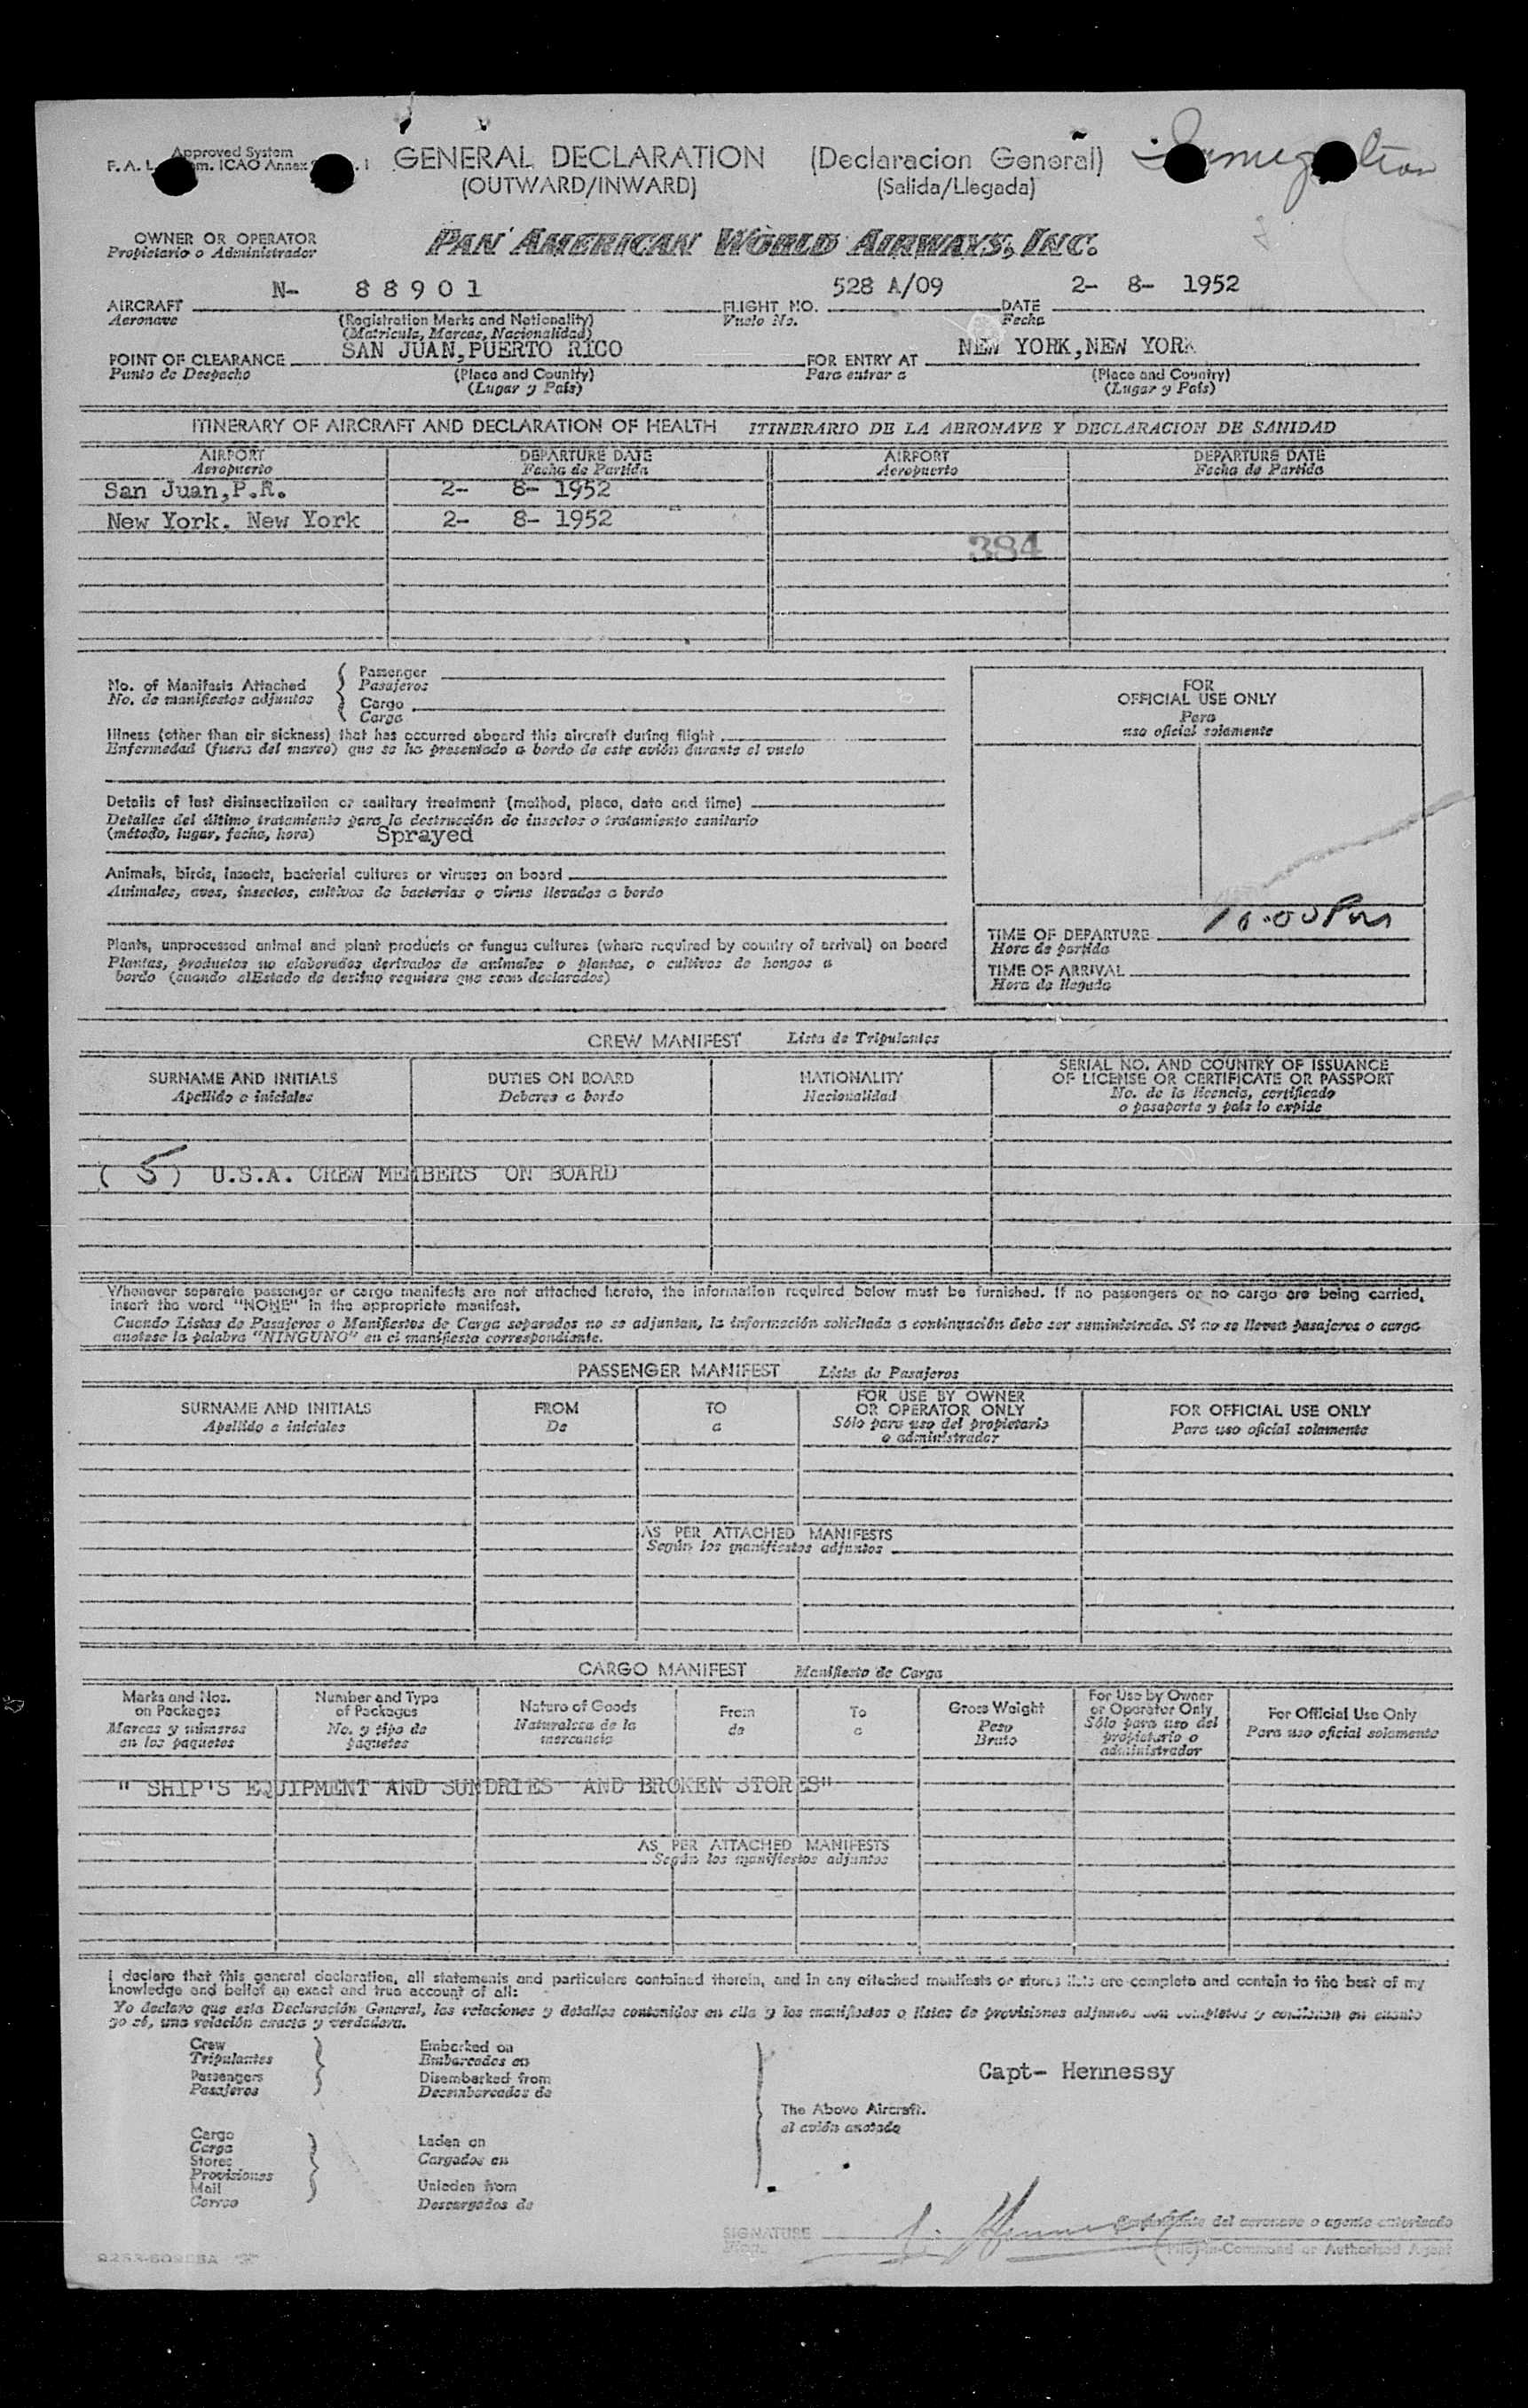 Approved System
F. A. L. m. ICAO Annex
GENERAL DECLARATION (Declaracion General)
(OUTWARD/INWARD) (Salida/Llegada)
OWNER OR OPERATOR
Propietario o Administrador
PAN AMERICAN WORLD AIRWAYS, INC.
AIRCRAFT N- 88901 FLIGHT NO. 528 A/09 DATE 2- 8- 1952
Aeronave (Registration Marks and Nationality) Vuelo No. Fecha
(Matricula, Marcas, Nacionalidad)
POINT OF CLEARANCE SAN JUAN,PUERTO RICO FOR ENTRY AT NEW YORK,NEW YORK
Punto de Despacho (Place and Country) Para entrar a (Place and Country)
(Lugar y País) (Lugar y País)
ITINERARY OF AIRCRAFT AND DECLARATION OF HEALTH ITINERARIO DE LA AERONAVE Y DECLARACION DE SANIDAD
AIRPORT DEPARTURE DATE AIRPORT DEPARTURE DATE
Aeropuerto Fecha de Partida Aeropuerto Fecha de Partida
San Juan,P.R. 2- 8- 1952
New York. New York 2- 8- 1952
384
No. of Manifests Attached
No. de manifiestos adjuntos
Passenger
Pasajeros
Cargo
Carga
Illness (other than air sickness) that has occurred aboard this aircraft during flight
Enfermedad (fuera del mareo) que se ha presentado a bordo de este avión durante el vuelo
Details of last disinsectization or sanitary treatment (method, place, date and time)
Detalles del último tratamiento para la destrucción de insectos o tratamiento sanitario
(método, lugar, fecha, hora) Sprayed
Animals, birds, insects, bacterial cultures or viruses on board
Animales, aves, insectos, cultivos de bacterias o virus llevados a bordo
Plants, unprocessed animal and plant products or fungus cultures (where required by country of arrival) on board
Plantas, productos no elaborados derivados de animales o plantas, o cultivos de hongos a
bordo (cuando elEstado de destino requiera que sean declarados)
FOR
OFFICIAL USE ONLY
Para
uso oficial solamente
TIME OF DEPARTURE
Hora de partida
TIME OF ARRIVAL
Hora de llegada
CREW MANIFEST Lista de Tripulantes
SURNAME AND INITIALS DUTIES ON BOARD NATIONALITY SERIAL NO. AND COUNTRY OF ISSUANCE
OF LICENSE OR CERTIFICATE OR PASSPORT
Apellido e iniciales Deberes a bordo Nacionalidad No. de la licencia, certificado
o pasaporte y país lo expide
( 5 ) U.S.A. CREW MEMBERS ON BOARD
Whenever separate passenger or cargo manifests are not attached hereto, the information required below must be furnished. If no passengers or no cargo are being carried,
insert the word "NONE" in the appropriate manifest.
Cuando Listas de Pasajeros o Manifiestos de Carga separados no se adjuntan, la información solicitada a continuación debe ser suministrada. Si no se llevan pasajeros o carga
anotese la palabra "NINGUNO" en el manifiesto correspondiente.
PASSENGER MANIFEST Lista de Pasajeros
SURNAME AND INITIALS FROM TO FOR USE BY OWNER
OR OPERATOR ONLY FOR OFFICIAL USE ONLY
Apellido e iniciales De a Sólo para uso del propietario
o administrador Para uso oficial solamente
AS PER ATTACHED MANIFESTS
Según los manifiestos adjuntos
CARGO MANIFEST Manifiesto de Carga
Marks and Nos.
on Packages
Marcas y números
en los paquetes
Number and Type
of Packages
No. y tipo de
paquetes
Nature of Goods
Naturaleza de la
mercancia
From
de
To
a
Gross Weight
Peso
Bruto
For Use by Owner
or Operator Only
Sólo para uso del
propietario o
administrador
For Official Use Only
Para uso oficial solamente
" SHIP'S EQUIPMENT AND SUNDRIES AND BROKEN STORES"
AS PER ATTACHED MANIFESTS
Según los manifiestos adjuntos
I declare that this general declaration, all statements and particulars contained therein, and in any attached manifests or stores lists are complete and contain to the best of my
knowledge and belief an exact and true account of all:
Yo declaro que esta Declaración General, las relaciones y detalles contenidos en ella y los manifiestos o listas de provisiones adjuntos son completos y contienen en cuanto
yo sé, una relación exacta y verdadera.
Crew
Tripulantes
Passengers
Pasajeros
Embarked on
Embarcados en
Disembarked from
Desembarcados de
Cargo
Carga
Stores
Provisiones
Mail
Correo
Laden on
Cargados en
Unladen from
Descargados de
The Above Aircraft.
el avión anotado
Capt- Hennessy
SIGNATURE
del aeronave o agente autorizado
Pilot-in-Command or Authorized Agent